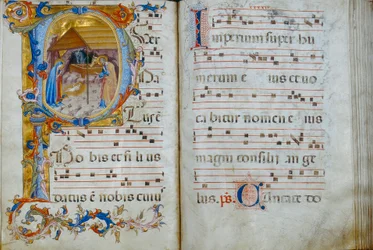 P
uer
na
tus ē
no bis et fi li us
datus ē nobis cuiu
Imperium super hu
merum e ius et vo
ca bitur nomen e ius
magni consilii an ge
lus. ps. Cantate do